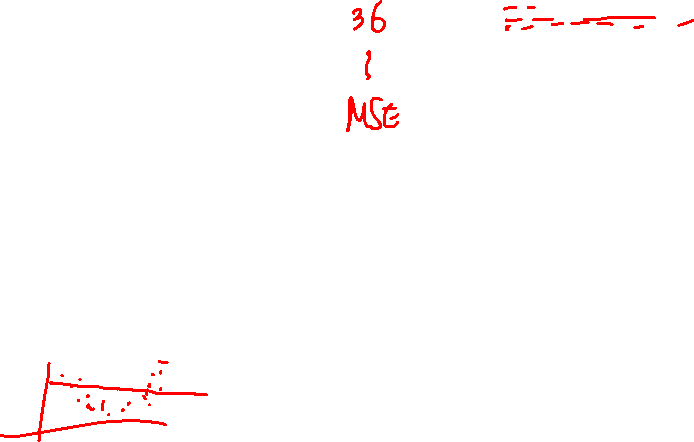 36
MSE